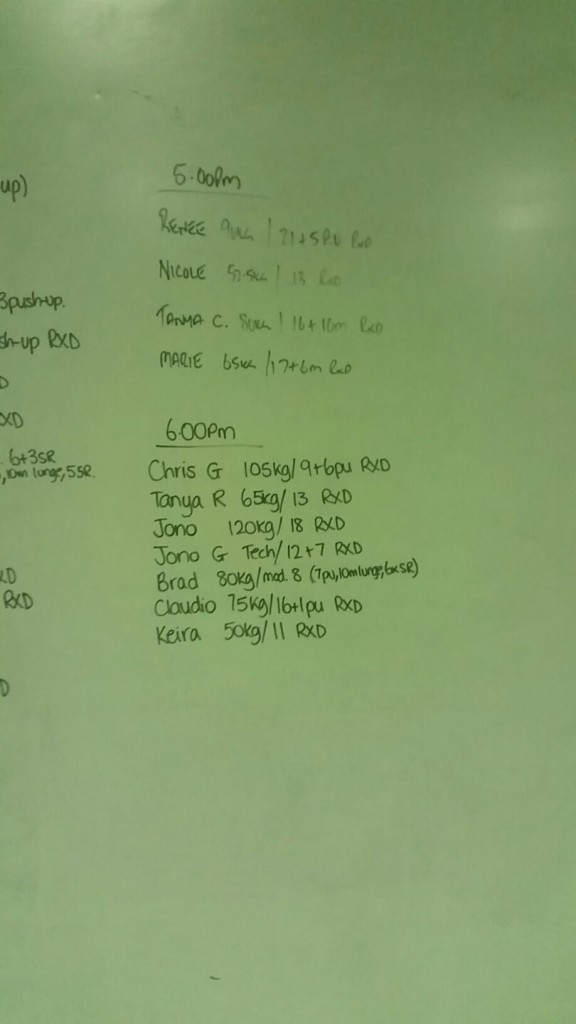 up)
3push-up.
sh-up RXD
D
XD
6+3SR
,10m lunge, 5SR.
XD
RXD
D
5.00pm
RENEE / 21+5PU RxD
NICOLE 57.5KG / 13 RxD
TANYA C. 80KG / 16+10m RxD
MARIE 65KG / 17+6m RxD
6.00pm
Chris G 105kg/9+6pu RXD
Tanya R 65kg/ 13 RXD
Jono 120kg/ 18 RXD
Jono G Tech/12+7 RXD
Brad 80kg/mod. 8 (7pu,10mlunge,6xSR)
Claudio 75kg/16+1pu RXD
Keira 50kg/ 11 RXD